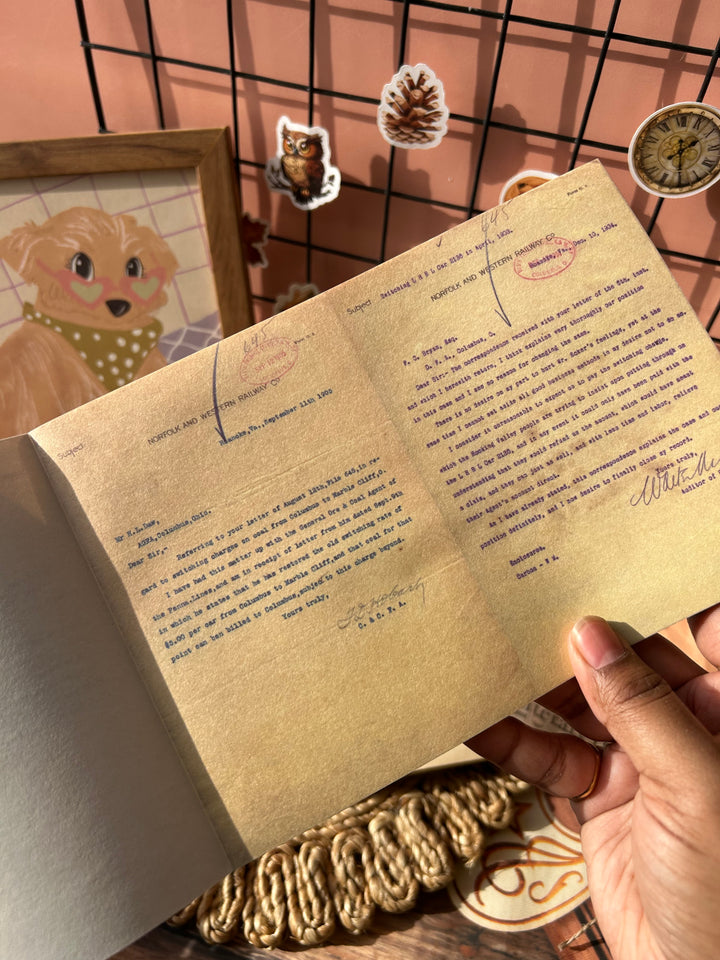 645
Form K. A.
Subject
NORFOLK AND WESTERN RAILWAY CO
Roanoke,Va., September 11th 1905
Mr H.L.
AGFA,Columbus,Ohio.
Dear Sir,-
Referring to your letter of August 18th,File 645,in re-
gard to switching charges on coal from Columbus to Marble Cliff,O.
I have had this matter up with the General Ore & Coal Agent of
the Penna.Lines,and am in receipt of letter from him dated Sept.9th
in which he states that he has restored the old switching rate of
$5.00 per car from Columbus to Marble Cliff,and that coal for that
point can be billed to Columbus,subject to this charge beyond.
Yours truly,
C. & C. F. A.
645
Form K. A.
Subject Switching L H & L Car 2136 in April, 1903.
NORFOLK AND WESTERN RAILWAY CO
Roanoke, Va., Dec. 10, 1904.
F. C. Bryan, Esq.
Columbus, O.
Dear Sir: The correspondence received with your letter of the 6th, inst.
and which I herewith return. I think explains very thoroughly our position
in this case and I see no reason for changing the same.
There is no desire on my part to hurt Mr. feelings, yet at the
same time I cannot set aside all good business methods in my desire not to do so.
I consider it unreasonable to expect us to pay the switching charge,
which the Hocking Valley people are trying to insist upon getting through us
on the L H & L Car 2136, and if any event it could only have been paid with the
understanding that they would refund us the amount, which would have meant
and they can just as well, and with less time and labor, relieve
their agent's account direct.
As I have already stated, this correspondence explains the case and our
position definitely, and I now desire to finally close my record.
Yours truly,
Auditor of
Enclosures.